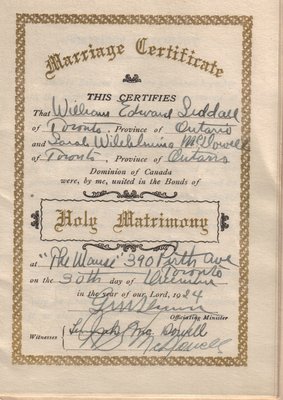 Marriage Certificate
THIS CERTIFIES
That William Edward Siddall
of Toronto. Province of Ontario
and Sarah Wilhelmina McDowell
of Toronto. Province of Ontario
Dominion of Canada
were, by me, united in the Bonds of
Holy Matrimony
at "The Manse" 390 Perth Ave
Toronto
on the 30th day of December
in the year of our Lord, 1924
Officiating Minister
Witnesses
McDowell